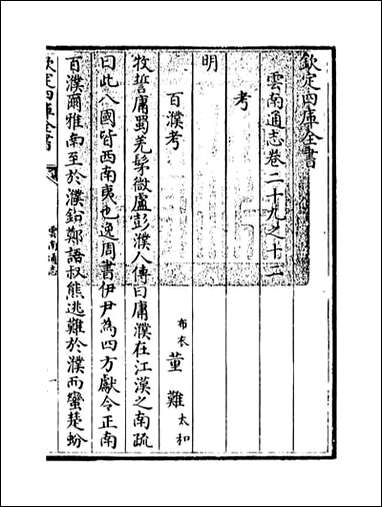 欽定四庫全書
雲南通志卷二十九之十二
考
明
百濮考
布衣 董難 太和
牧誓庸蜀羌髳微盧彭濮人傳曰庸濮在江漢之南疏
曰此八國皆西南夷也逸周書伊尹為四方獻令正南
百濮爾雅南至於濮鈆鄭語叔熊逃難於濮而蠻楚蚡
欽定四庫全書
雲南通志